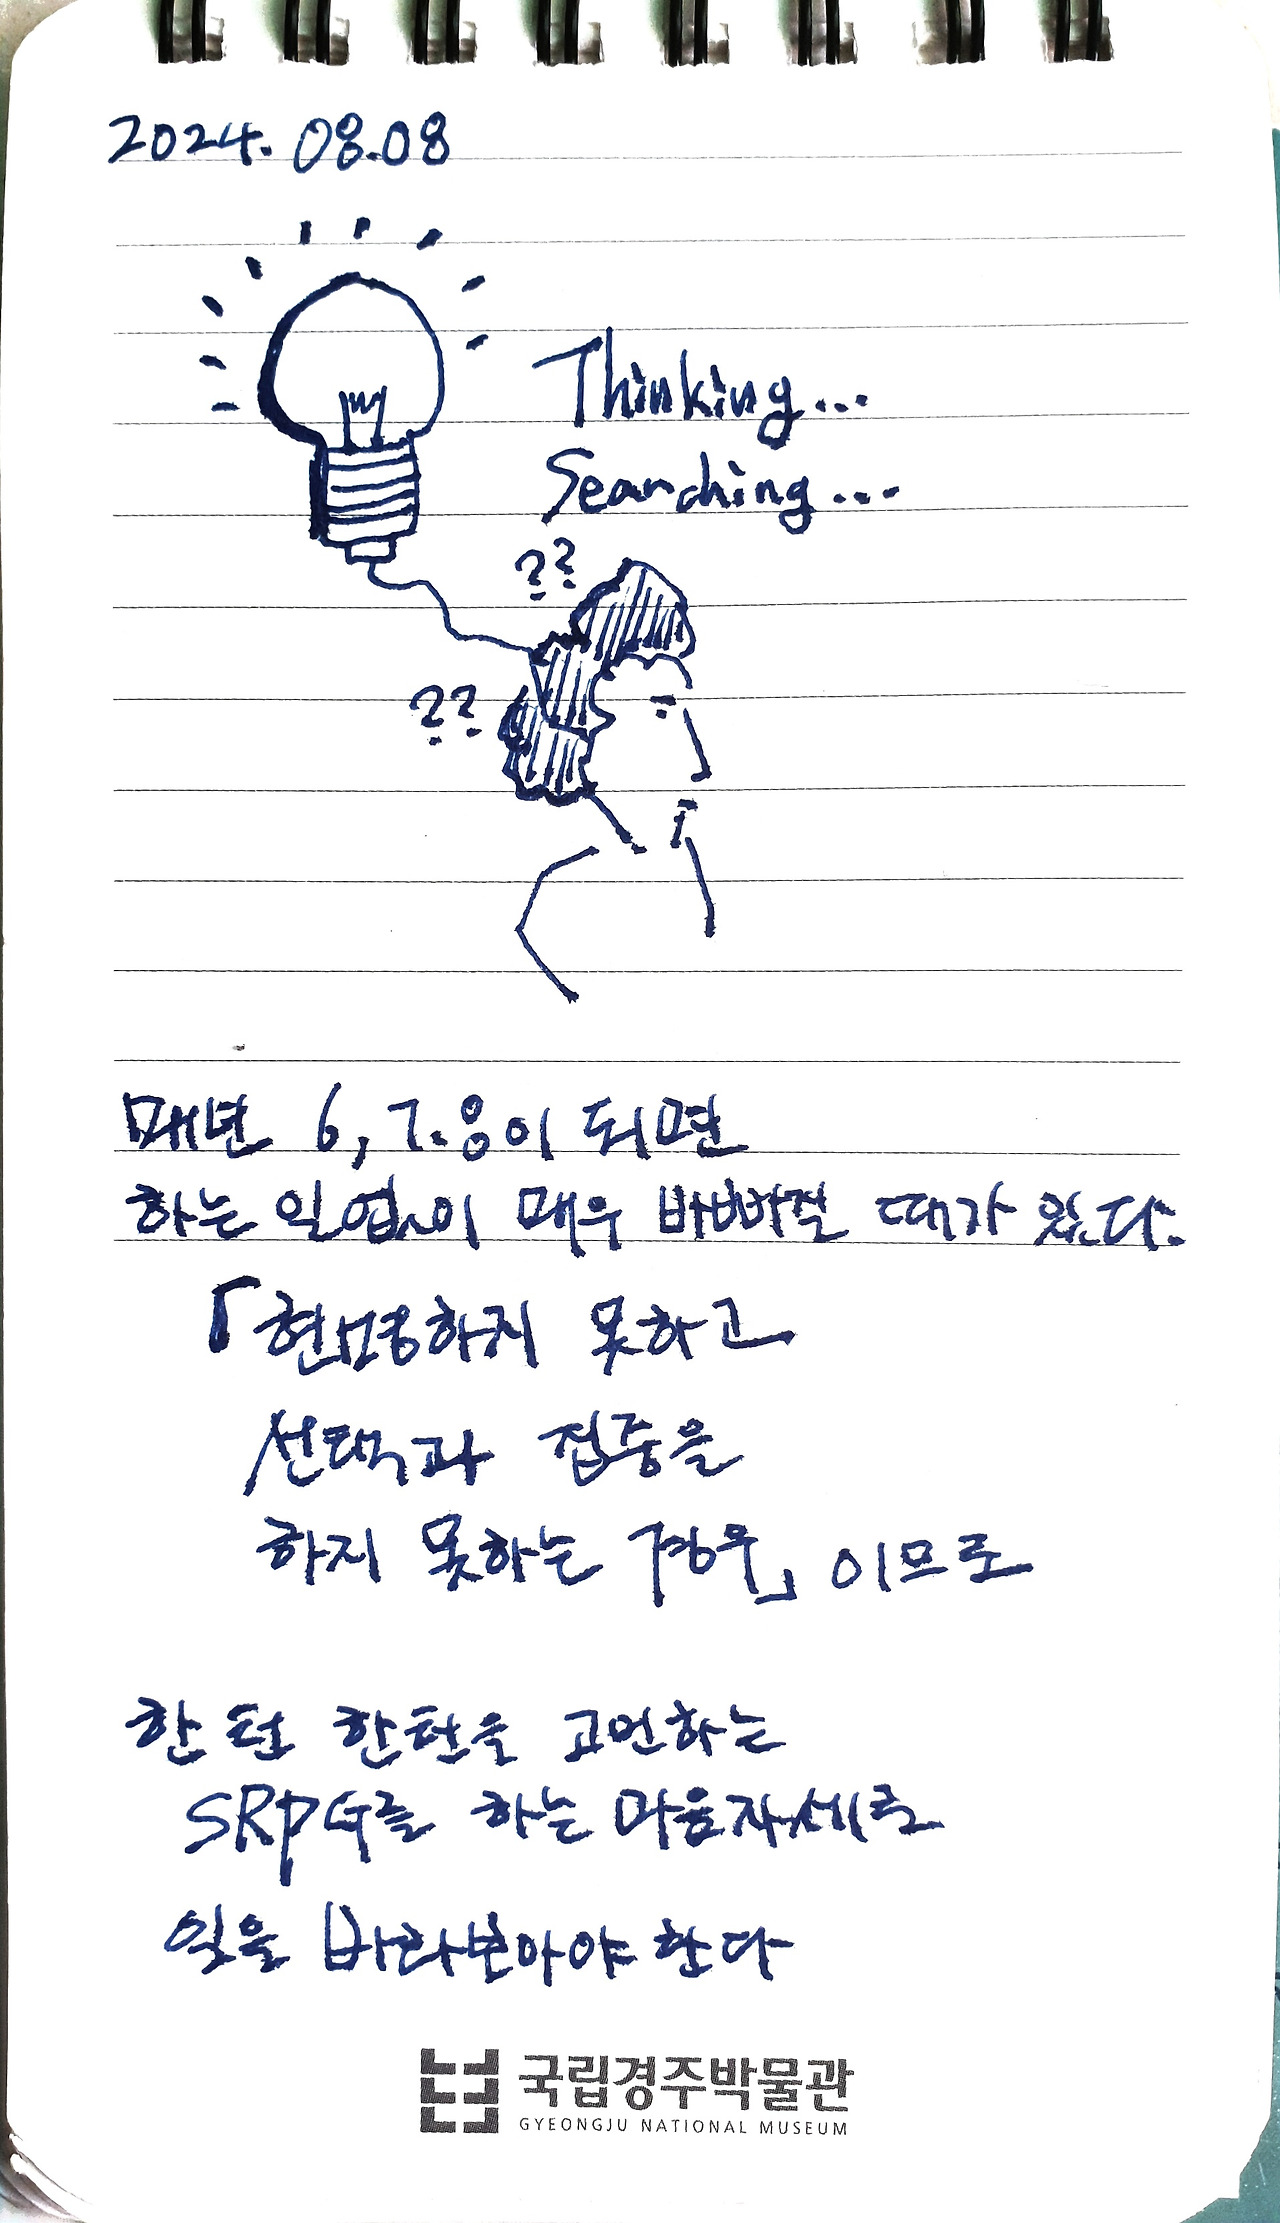 2024. 08.08
Thinking...
Searching...
??
??
매년 6, 7.8이 되면
하는 일업이 매우 바빠질 때가 있다.
「현명하지 못하고
선택과 집중을
하지 못하는 경우」이므로
한턴 한턴을 고민하는
SRPG를 하는 마음자세로
일을 바라보아야 한다
국립경주박물관
GYEONGJU NATIONAL MUSEUM